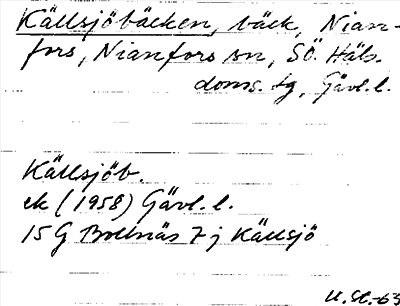 Källsjöbäcken, bäck, Nian-
fors, Nianfors sn, SÖ. Häls.
doms. tg, Gävl. l.
Källsjöb.
ek (1958) Gävl. l.
15 G Bollnäs 7 j Källsjö
U.Sl.-63